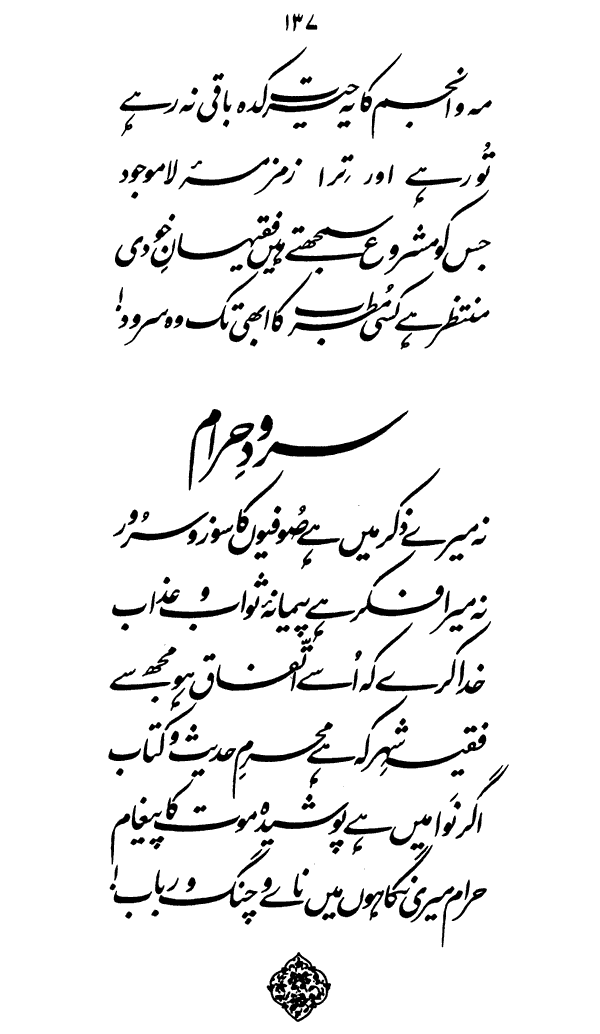 ۱۳۷
مہ و انجم کا یہ حیرت کدہ باقی نہ رہے
تُو رہے اور ترا زمزمۂ لا موجود
جس کو مشروع سمجھتے ہیں فقیہانِ خودی
منتظر ہے کسی مُطرب کا ابھی تک وہ سرود!
سرودِ حرام
نہ میرے ذکر میں ہے صُوفیوں کا سوز و سرُور
نہ میرا فکر ہے پیمانۂ ثواب و عذاب
خدا کرے کہ اُسے اتّفاق ہو مجھ سے
فقیہِ شہر کہ ہے محرمِ حدیث و کتاب
اگر نَوا میں ہے پوشیدہ موت کا پیغام
حرام میری نگاہوں میں ناے و چنگ و رباب!